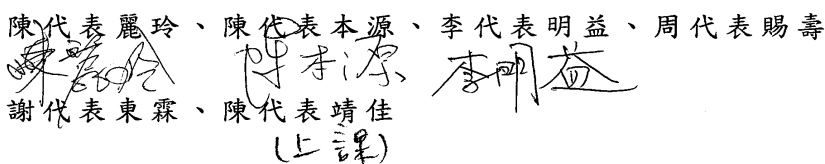 陳代表麗玲、陳代表本源、李代表明益、周代表賜壽
陳麗玲 陳本源 李明益
謝代表東霖、陳代表靖佳
(上課)